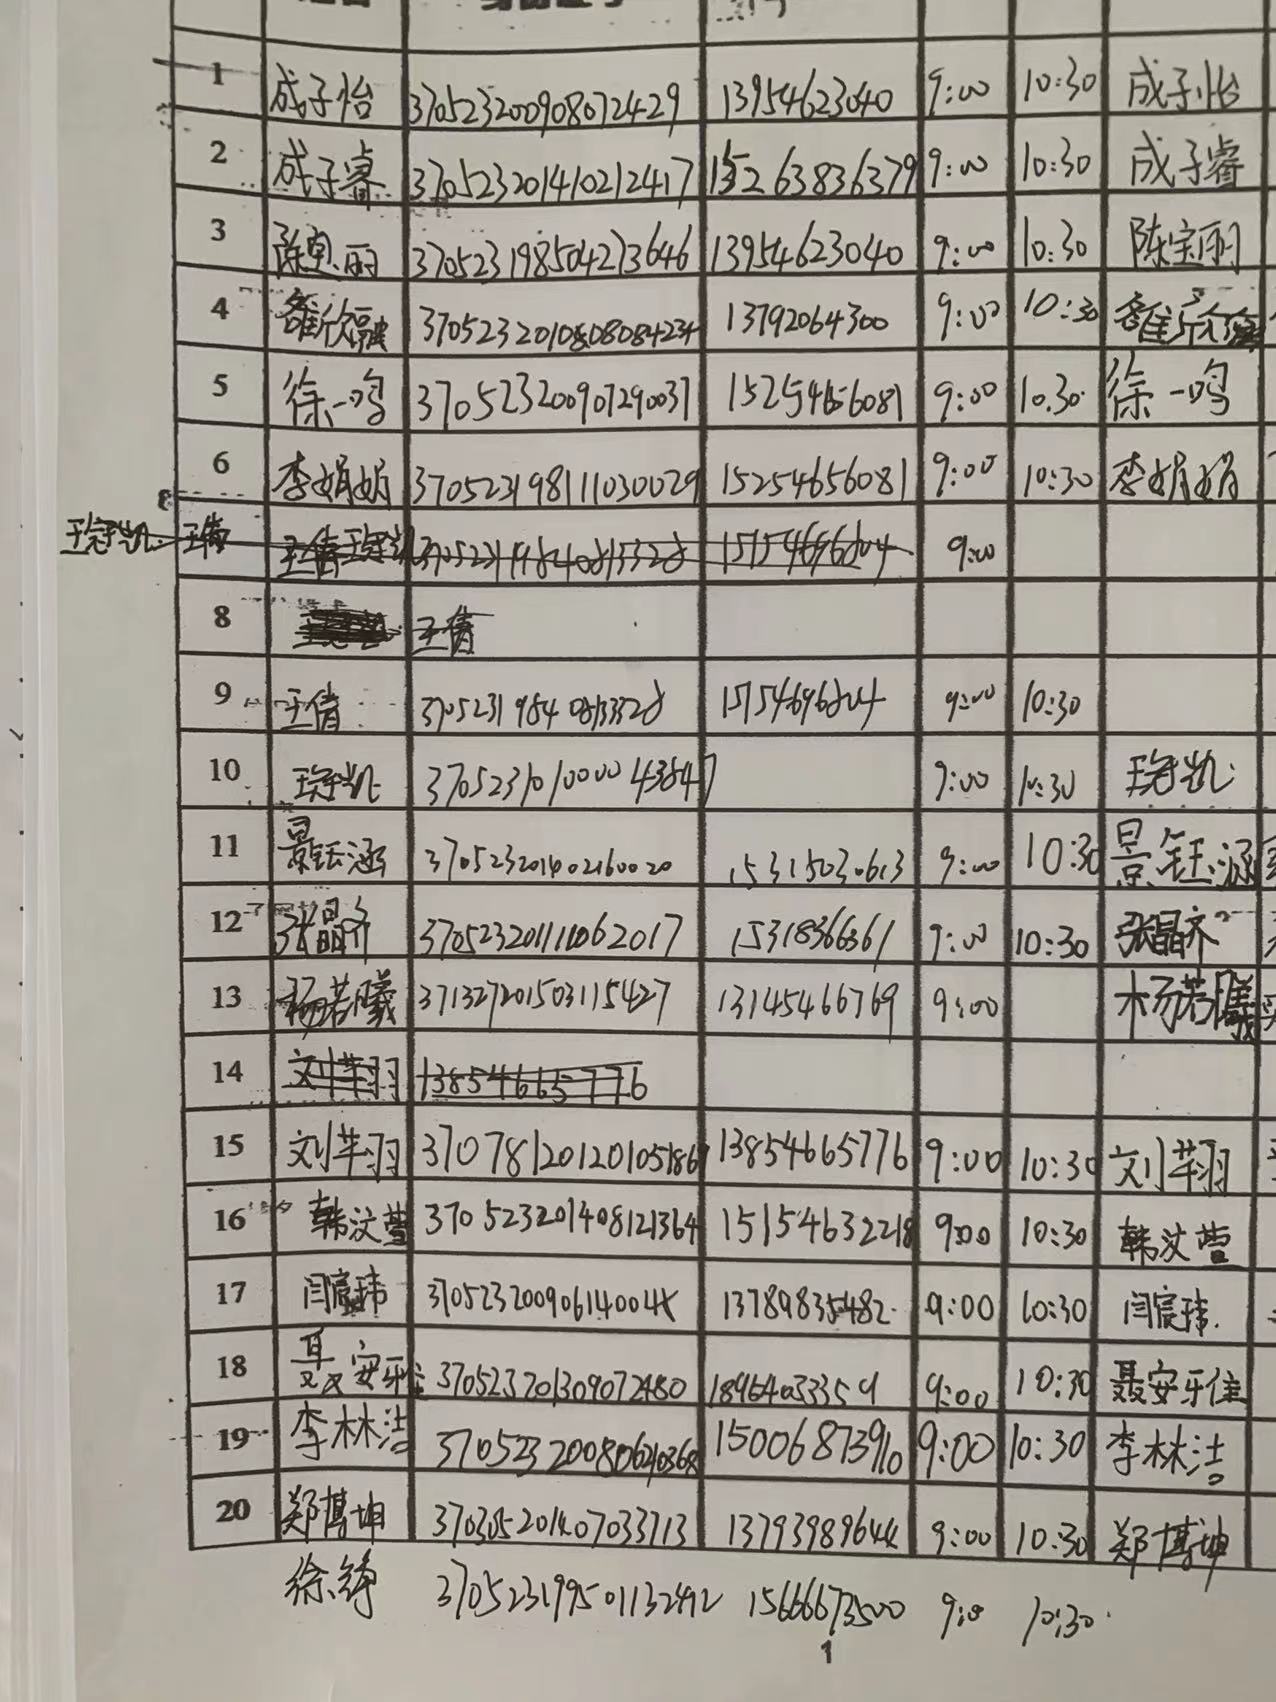 1 成子怡 370523200908072429 13954623040 9:00 10:30 成子怡
2 成子睿 370523201410212417 15263836379 9:00 10:30 成子睿
3 陈宝丽 370523198504273646 13954623040 9:00 10:30 陈宝丽
4 13792064300 9:00 10:30
5 徐一鸣 370523200907290037 15254656081 9:00 10:30 徐一鸣
6 李娟娟 370523198111030029 15254656081 9:00 10:30 李娟娟
王冠凯 王倩 王倩 9:00
8 王倩
9 王倩 15154696804 9:00 10:30
10 王冠凯 9:00 10:30 王冠凯
11 景钰涵 370523201402160020 15315030613 9:00 10:30 景钰涵
12 张晶齐 15318366361 9:00 10:30 张晶齐
13 杨若曦 371327201503115427 13145466769 9:00 杨若曦
14 刘芈羽 13854665776
15 刘芈羽 13854665776 9:00 10:30 刘芈羽
16 韩汶萱 370523201408121364 15154632218 9:00 10:30 韩汶萱
17 闫宸玮 37052320090614004X 13789835482 9:00 10:30 闫宸玮
18 聂安骅 9:00 10:30
19 李林洁 15006873910 9:00 10:30 李林洁
20 郑博坤 370305201407033713 13793989644 9:00 10:30 郑博坤
徐铮 370523199501132412 15666673500 9:00 10:30
1